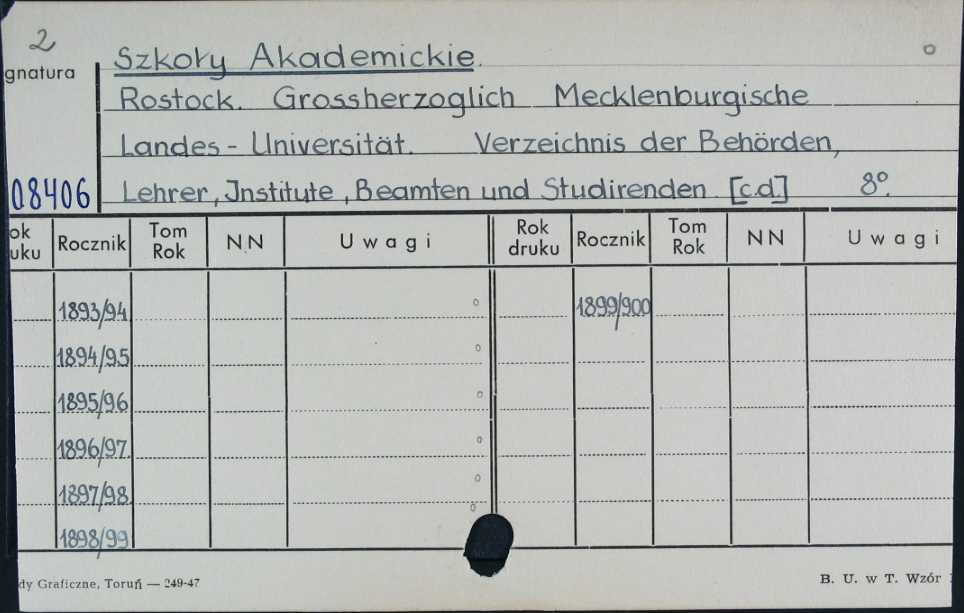 2
Szkoły Akademickie.
gnatura
Rostock. Grossherzoglich Mecklenburgische
Landes-Universität. Verzeichnis der Behörden,
08406 Lehrer, Institute, Beamten und Studirenden [c.d] 8º.
ok uku Rocznik Tom Rok NN Uwagi Rok druku Rocznik Tom Rok NN Uwagi
1893/94 1899/900
1894/95
1895/96
1896/97.
1897/98
1898/99
dy Graficzne, Toruń — 249-47 B. U. w T. Wzór